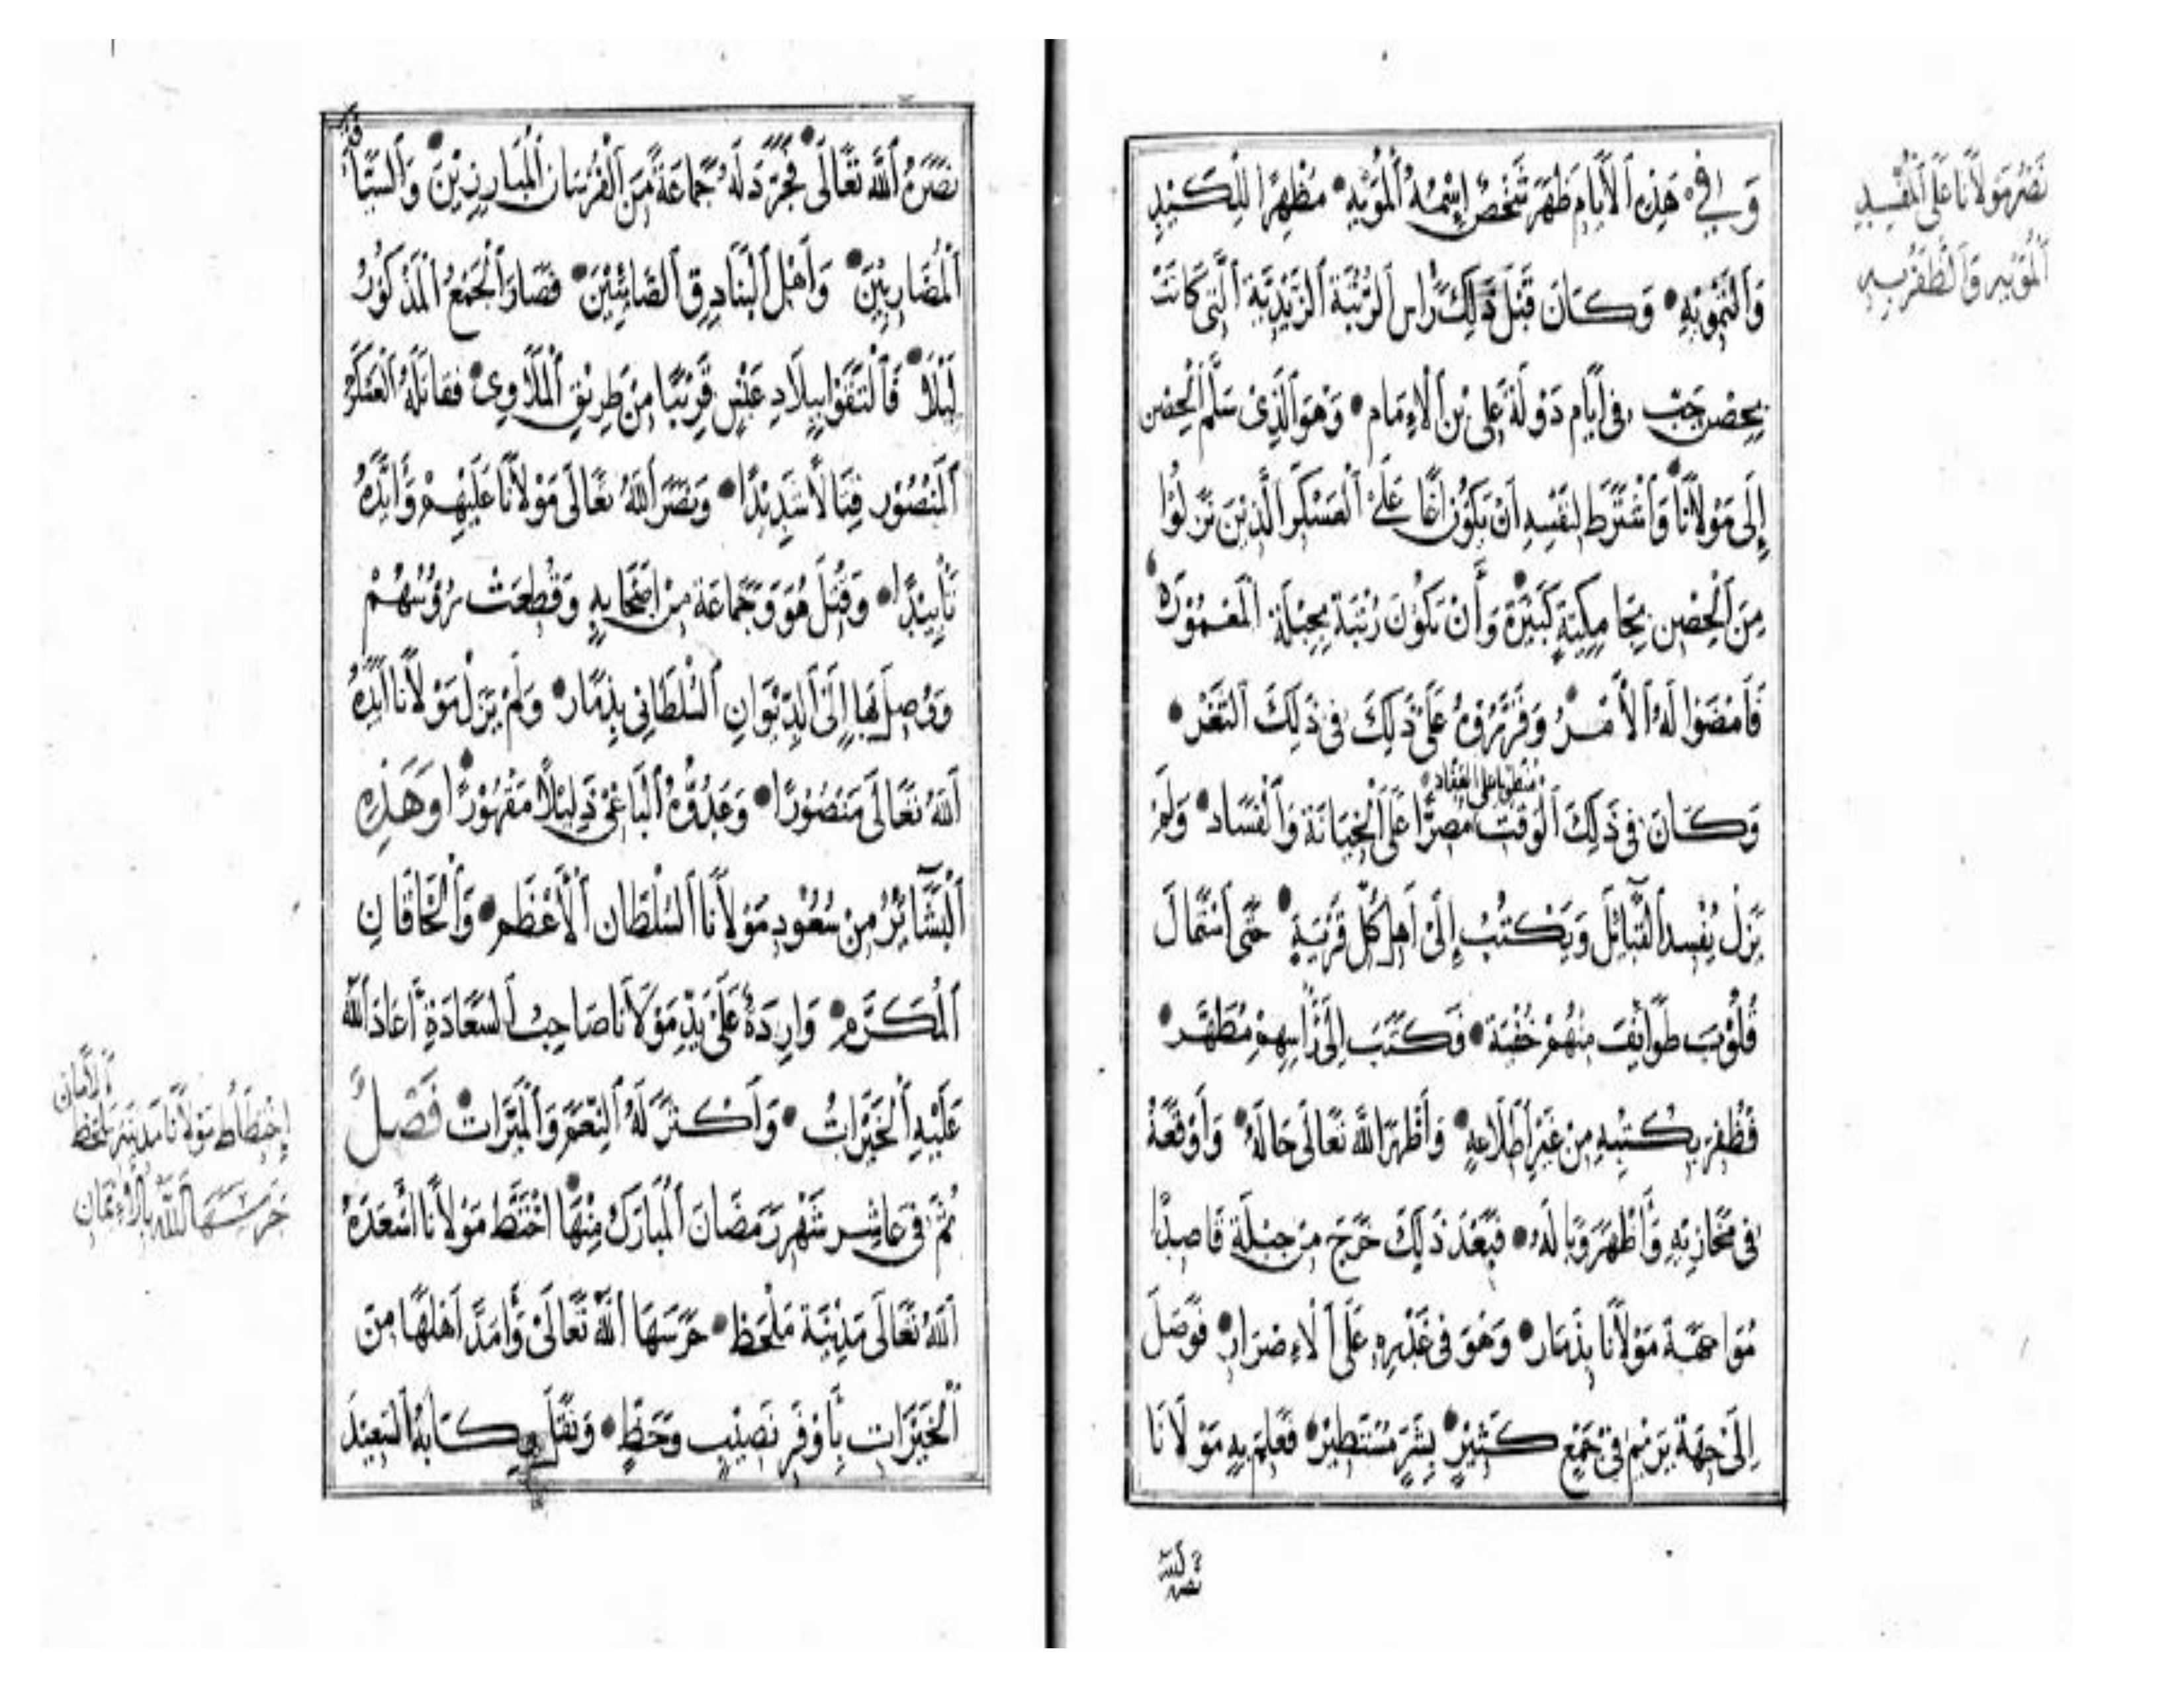 وَفِي هَذِهِ الأَيَّامِ ظَهَرَ شَخْصٌ إِسْمُهُ الْمُوَيِّه مُظْهِرًا لِلْكَيْدِ
وَالتَّمْوِيْهِ وَكَانَ قَبْلَ ذَلِكَ رَاس الرُّتْبَة الزَّيْدِيَّة الَّتِي كَانَتْ
بِحِصْنِ حَبّ فِي أَيَّامِ دَوْلَة عَلِي بْن الْإِمَام وَهُوَ الَّذِي سَلَّمَ الْحِصْن
إِلَى مَوْلَانَا وَاشْتَرَطَ لِنَفْسِهِ أَنْ يَكُوْنَ أَغَا عَلَى الْعَسْكَر الَّذِيْنَ نَزَلُوْا
مِنَ الْحِصْنِ بِجَامِكِيَّةٍ كَبِيْرَة وَأَنْ تَكُوْنَ رُتْبَة بِجِبْلَة الْمَعْمُوْرَة
فَأَمْضَوْا لَهُ الأَمْرُ وَقَرَّرُوْهُ عَلَى ذَلِكَ فِي ذَلِكَ الثَّغْر
وَكَانَ فِي ذَلِكَ الْوَقْت مُصِرًّا عَلَى الْخِيَانَة وَالْفَسَاد وَلَمْ
مُنْطَوِيًا عَلَى
يَزَلْ يُفْسِد الْقَبَائِل وَيَكْتُبُ إِلَى أَهْلِ كُلِّ قَرْيَةٍ حَتَّى اسْتَمَالَ
قُلُوْبَ طَوَائِفَ مِنْهُمْ خُفْيَة فَكَتَبَ إِلَى رَأْسِهِمْ مُطَهَّر
فَظُفِرَ بِكُتُبِهِ مِنْ غَيْرِ اطِّلَاعِهِ وَأَظْهَرَ اللَّهُ تَعَالَى حَالَهُ وَأَوْقَعَهُ
فِي مَخَازِيْهِ وَأَظْهَرَ وَبَالَهُ فَبَعْدَ ذَلِكَ خَرَجَ مِنْ جِبْلَة قَاصِدًا
مُوَاجَهَة مَوْلَانَا بِذَمَار وَهُوَ فِي غَدْرِهِ عَلَى الْإِصْرَار فَوَصَلَ
إِلَى جِهَة يَرِيْم فِي جَمْعٍ كَثِيْرٍ بِشَرٍّ مُسْتَطِيْر فَعَلِمَ بِهِ مَوْلَانَا
نَصَرَهُ اللَّه
نَصْرُ مَوْلَانَا عَلَى الْمُفْسِدِ
الْمُوَيِّه وَالظَّفَرُ بِهِ
نَصَرَهُ اللَّهُ تَعَالَى فَجَرَّدَ لَهُ جَمَاعَةً مِنَ الْفُرْسَان الْمُبَارِزِيْنَ وَالسَّبَّاقَة
الْمُضَارِبِيْنَ وَأَهْلِ الْبَنَادِق الصَّائِبِيْنَ فَصَارَ الْجَمْعُ الْمَذْكُوْرُ
لَيْلًا فَالْتَقَوْا بِبِلَادِ عَنْس قَرِيْبًا مِنْ طَرِيْق الْمَلَاوِي فَقَاتَلَهُ الْعَسْكَر
الْمَنْصُوْر قِتَالًا شَدِيْدًا وَنَصَرَ اللَّهُ تَعَالَى مَوْلَانَا عَلَيْهِمْ وَأَيَّدَهُ
تَأْيِيْدًا وَقُتِلَ هُوَ وَجَمَاعَة مِنْ أَصْحَابِهِ وَقُطِعَتْ رُؤُوْسُهُمْ
وَوُصِلَ بِهَا إِلَى الدِّيْوَانِ السُّلْطَانِي بِذَمَار وَلَمْ يَزَلْ مَوْلَانَا أَيَّدَهُ
اللَّهُ تَعَالَى مَنْصُوْرًا وَعَدُوُّهُ الْبَاغِيْ ذَلِيْلًا مَقْهُوْرًا وَهَذِهِ
الْبَشَائِرُ مِنْ سُعُوْدِ مَوْلَانَا السُّلْطَان الْأَعْظَم وَالْخَاقَانِ
الْمُكَرَّم وَارِدَةٌ عَلَى يَدِ مَوْلَانَا صَاحِبُ السَّعَادَةِ أَعَادَ اللَّهُ
عَلَيْهِ الْخَيْرَاتُ وَأَكْثَرَ لَهُ النِّعَمَ وَالْمَبَرَّات فَصْلٌ
ثُمَّ فِي عَاشِر شَهْر رَمَضَانَ الْمُبَارَك مِنْهَا اخْتَطَّ مَوْلَانَا أَسْعَدَهُ
اللَّهُ تَعَالَى مَدِيْنَة مَلْحَظ حَرَسَهَا اللَّهُ تَعَالَى وَأَمَدَّ أَهْلَهَا مِنَ
الْخَيْرَات بِأَوْفَرِ نَصِيْبٍ وَحَظٍّ وَنَقَلَ رِكَابَهُ السَّعِيْدَ
إِخْتِطَاطُ مَوْلَانَا مَدِيْنَة مَلْحَظ
حَرَسَهَا اللَّهُ بِالْإِيْمَانِ
وَالْأَمَان